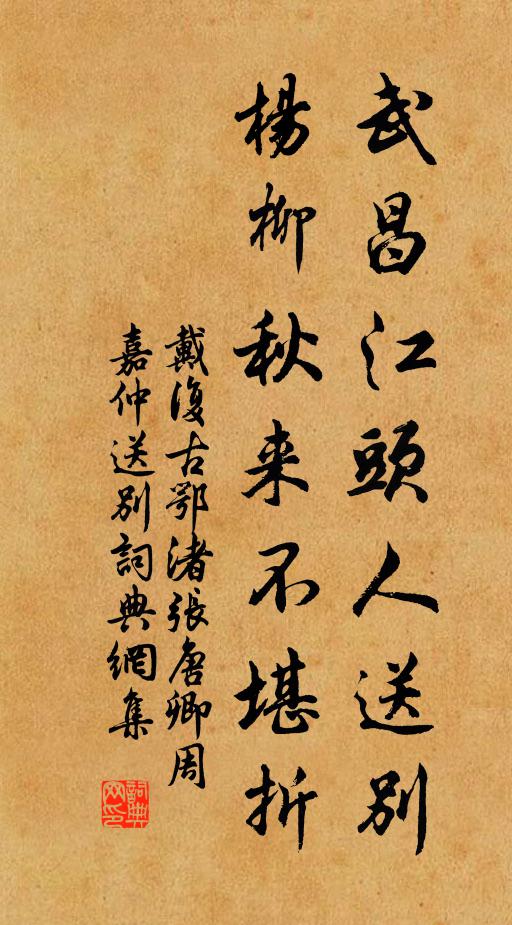 武昌江頭人送别
楊柳秋来不堪折
戴復古鄂渚張唐卿周
嘉仲送别詞典網集
詞典網印